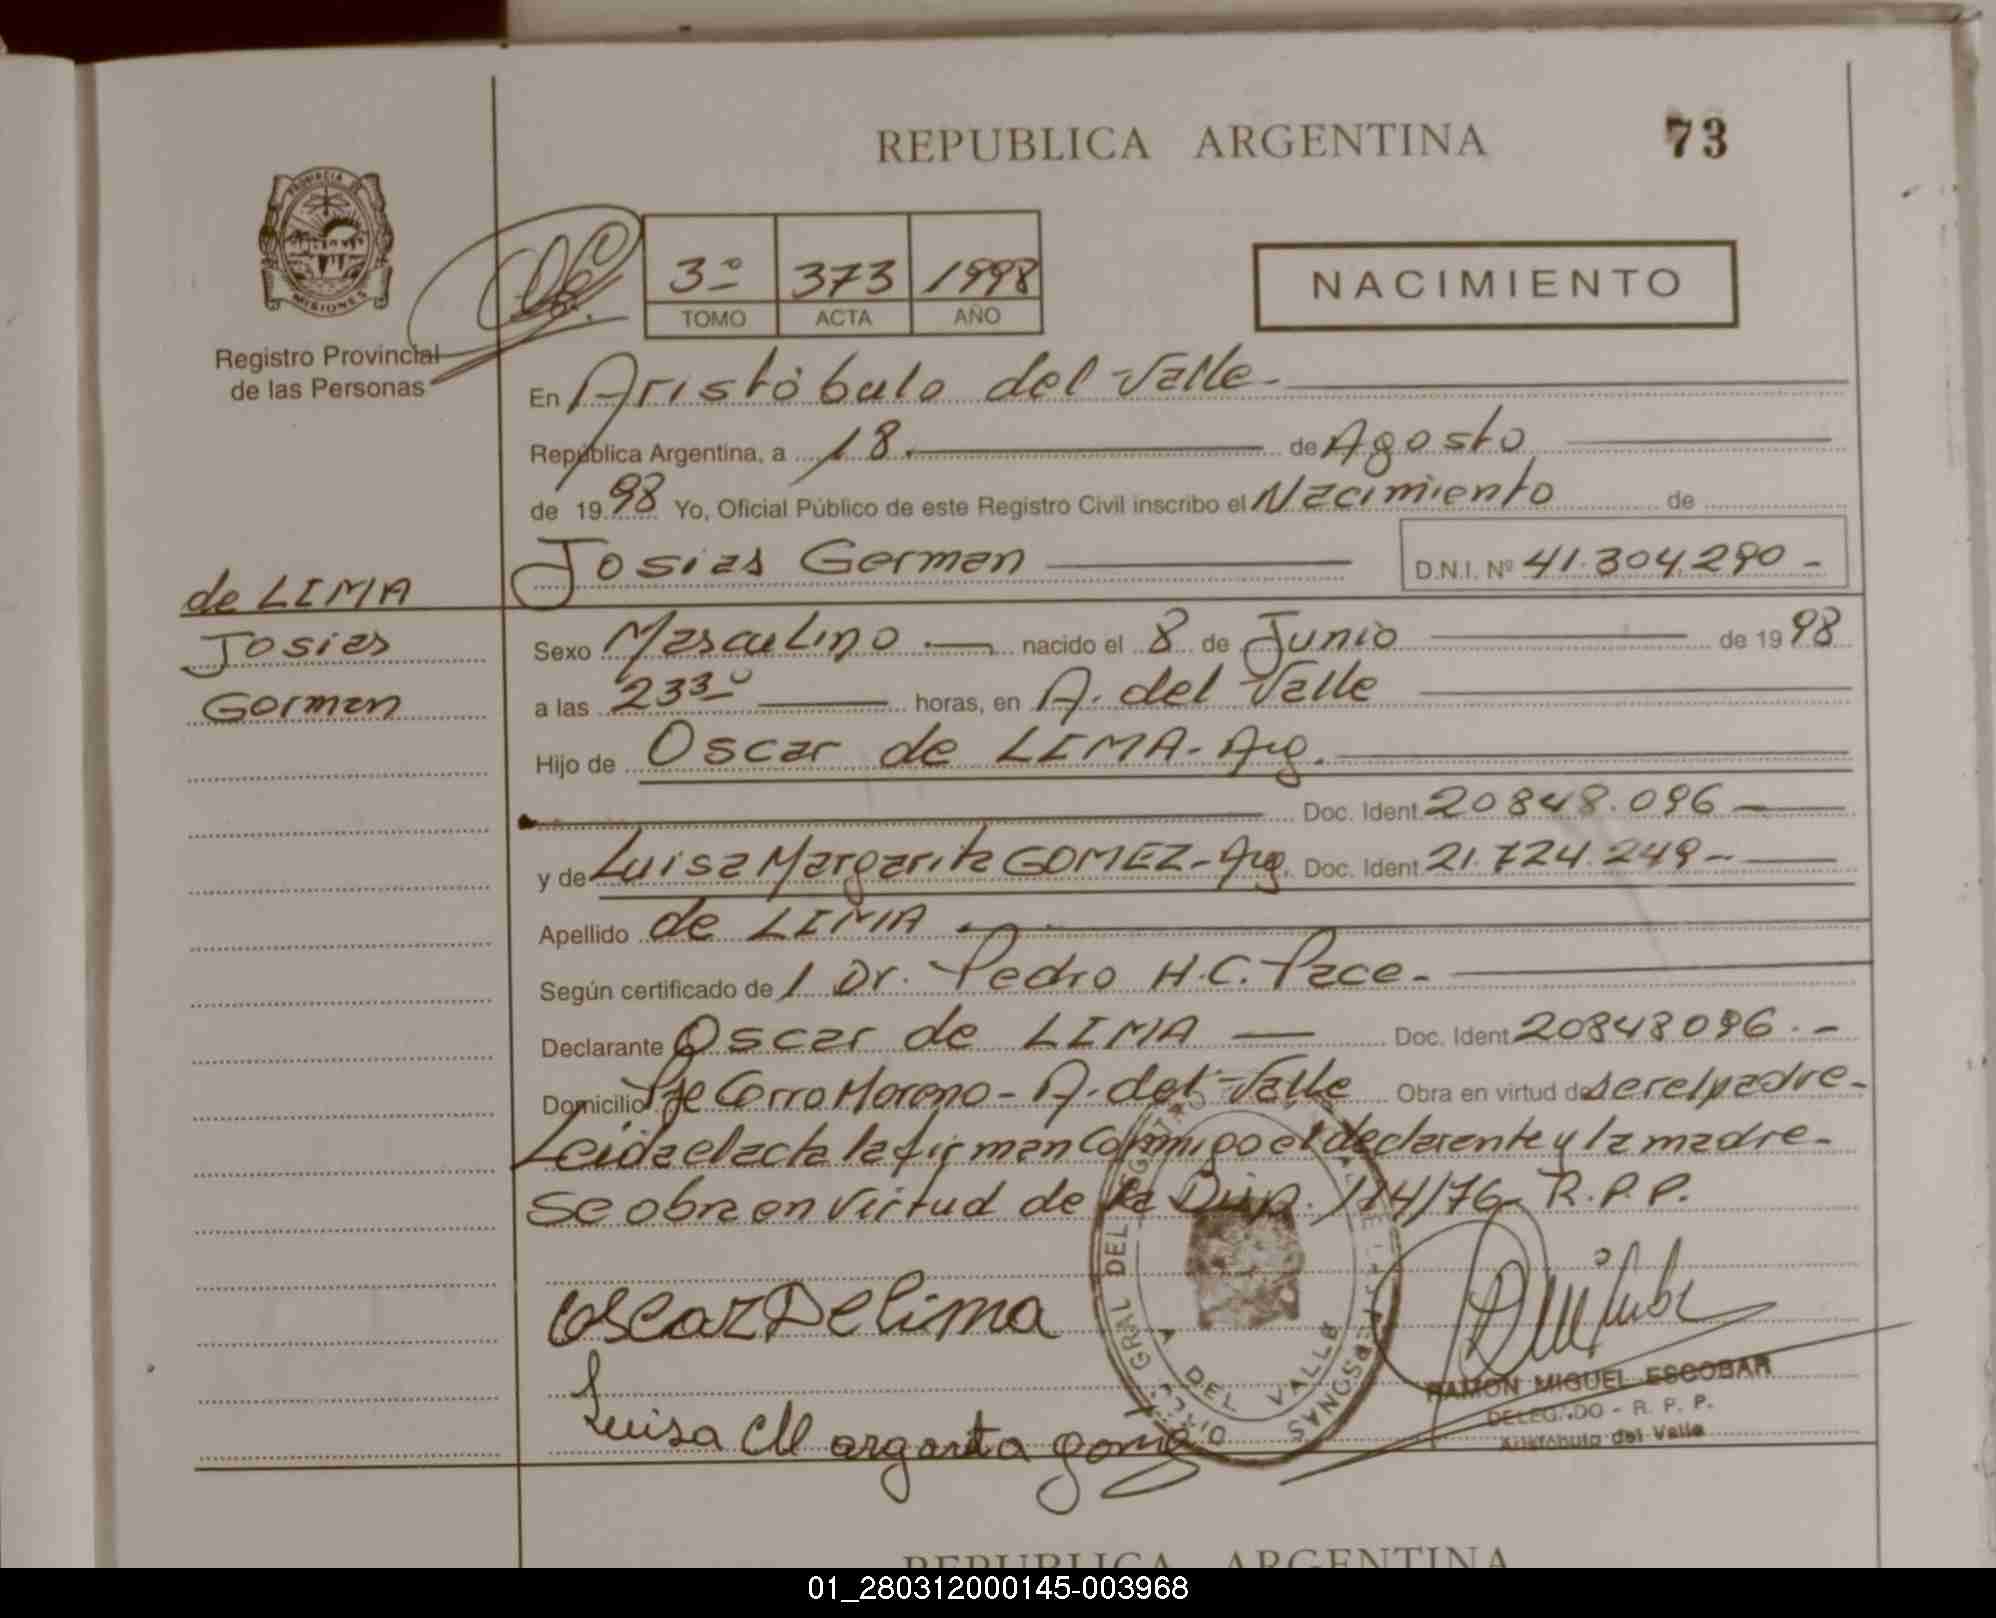 REPUBLICA ARGENTINA 73
PROVINCIA DE
MISIONES
Registro Provincial
de las Personas
3º 373 1998
TOMO ACTA AÑO
NACIMIENTO
En Aristóbulo del Valle-
República Argentina, a 18. de Agosto
de 1998 Yo, Oficial Público de este Registro Civil inscribo el Nacimiento de
Josias German D.N.I. Nº 41.304.290 -
de LIMA
Josias
German
Sexo Masculino. nacido el 8 de Junio de 1998
a las 23³⁰ horas, en A. del Valle
Hijo de Oscar de LIMA- Arg.
Doc. Ident. 20848.096 -
y de Luisa Margarita GOMEZ- Arg. Doc. Ident. 21.724.249 -
Apellido de LIMA
Según certificado de l Dr. Pedro H.C. Pace-
Declarante Oscar de LIMA Doc. Ident. 20848096. -
Domicilio Pje Cerro Moreno - A. del Valle Obra en virtud de ser el padre-
Leida el acta la firman conmigo el declarante y la madre-
se obra en virtud de la Disp. 114/76- R.P.P.
Oscar De lima
Luisa Margarita gomez
DIRECC. GRAL DEL REGISTRO PERSONAS
A DEL VALLE
RAMON MIGUEL ESCOBAR
DELEGADO - R. P. P.
Aristóbulo del Valle
REPUBLICA ARGENTINA
01_280312000145-003968